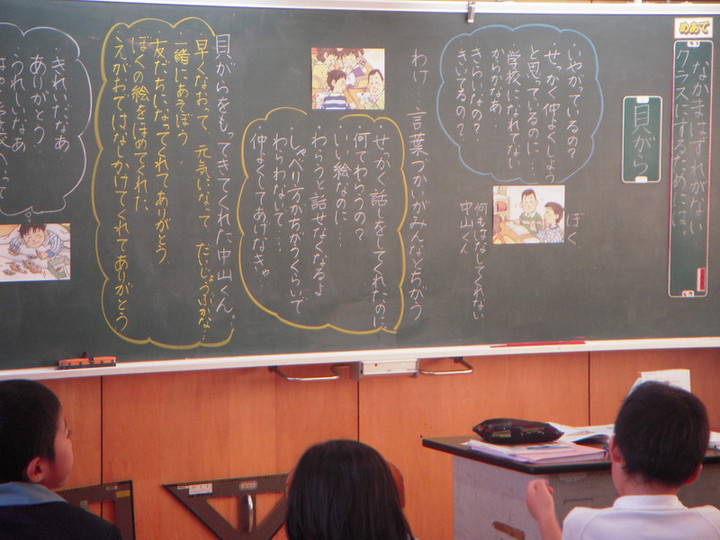 めあて
なかまはずれがない
クラスにするためには
貝がら
ぼく
何もはなしてくれない
中山くん
・いやがっているの?
・せっかく仲よくしよう
と思っているのに…
・学校になれてない
からかなあ
・きらいなの?
・きいてるの?
わけ 言葉づかいがみんなとちがう
・せっかく話しをしてくれたのに…
・何でわらうの?
・いい絵なのに…
・わらうと話せなくなるよ
・しゃべり方がちがうくらいで
わらわないで…
・仲よくしてあげなきゃ…
貝がらをもってきてくれた中山くん
・早くなおって、元気になって だいじょうぶかな…
・一緒にあそぼう
・友だちになってくれてありがとう
・ぼくの絵をほめてくれた
・えがおではなしかけてくれてありがとう
・きれいだなあ
・ありがとう
・うれしいなあ